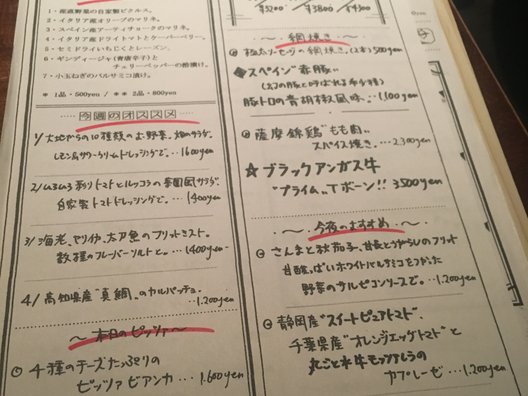 1・産直野菜の自家製ピクルス。
2・イタリア産オリーブのマリネ。
3・スペイン産アーティチョークのマリネ。
4・イタリア産ドライトマトとケーパーベリー。
5・セミドライいちじくとレーズン。
6・ギンディージャ(青唐辛子)と
チェリーペッパーの酢漬け。
7・小玉ねぎのバルサミコ漬け。
* 1品・500yen / ** 2品・800yen
今週のオススメ
1/ 大地からの10種類のお野菜、畑のサラダ。
レモン&サワークリームドレッシングで。…1600yen
2/ いろいろ彩りトマトとルッコラの サラダ。
自家製トマトドレッシングで。… 1400yen
3/ 海老、ヤリイカ、太刀魚のフリットミスト。
数種のフレーバーソルトと。… 1400yen
4/ 高知県産"真鯛"のカルパッチョ。
…1,200yen
〜本日のピッツァ〜
4種のチーズたっぷりの
ピッツァ ビアンカ … 1,600yen
¥3800/ ¥4300
〜網焼き〜
極太ソーセージの網焼き。(2本)500yen
◆スペイン"栗豚"。
(幻の豚と呼ばれる希少種)
豚トロの青胡椒風味。…1,100yen
薩摩錦鶏"もも肉"。
スパイス焼き。…2,300yen
☆ブラックアンガス牛
"プライム"Tボーン!! 3500yen
〜今夜のおすすめ〜
さんまと秋茄子、甘長とうがらしのフリット
甘酸っぱいホワイトバルサミコをつかった
野菜のサルピコンソースで。…1,200yen
静岡産"スイートピュアトマト"、
千葉県産"オレンジエッグトマト"と
丸ごと水牛モッツァレラの
カプレーゼ…1,200yen